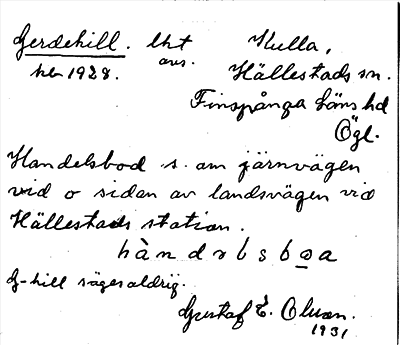 Gerdehill. lht Kulla,
avs. Hällestads sn.
her 1928. Finspånga läns hd
Ögl.
Handelsbod s. om järnvägen
vid o sidan av landsvägen vid
Hällestads station.
hàndəlsbωa
G-hill säges aldrig.
Gustaf E. Olsson.
1931